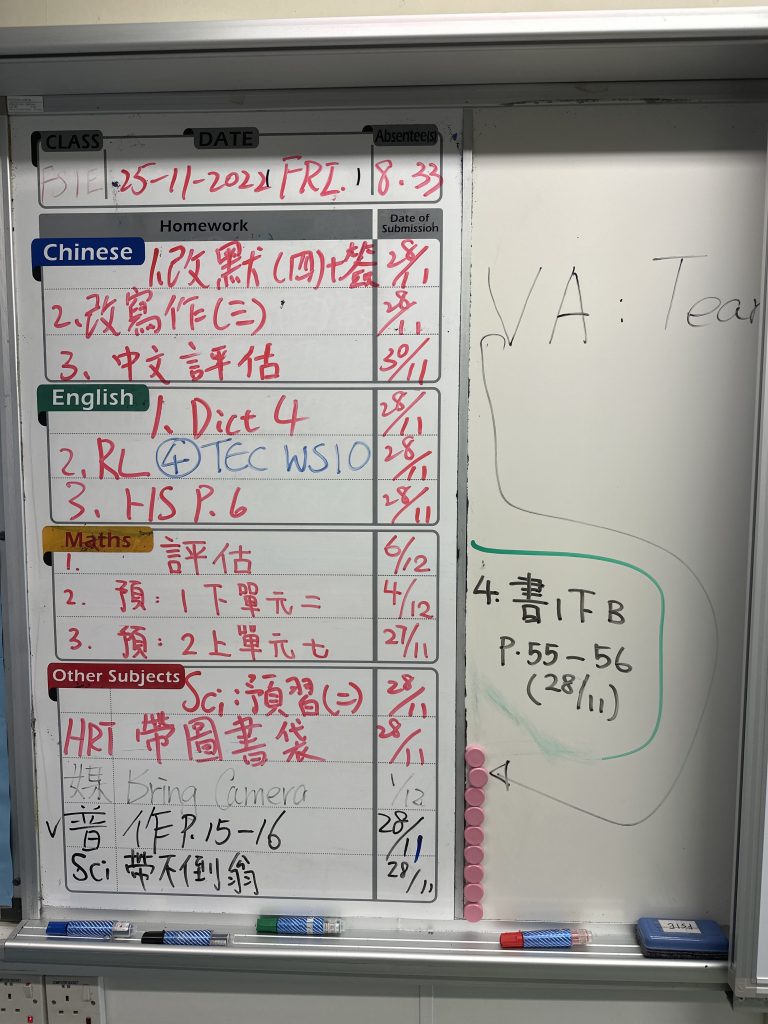 CLASS DATE Absentee(s)
FS1E 25-11-2022 FRI. 8.33
Homework Date of Submission
Chinese
1.改默(四)+簽 28/11
2.改寫作(三) 28/11
3.中文評估 30/11
English
1. Dict 4 28/11
2. RL ④ TEC WS10 28/11
3. HS P.6 28/11
Maths
1. 評估 6/12
2. 預:1下單元二 4/12
3. 預:2上單元七 27/11
Other Subjects
Sci:預習(二) 28/11
HRT 帶圖書袋 28/11
Bring Camera 1/12
v 普 作P.15-16 28/11
Sci 帶不倒翁 28/11
VA: Tear
4. 書1下B
P.55-56
(28/11)